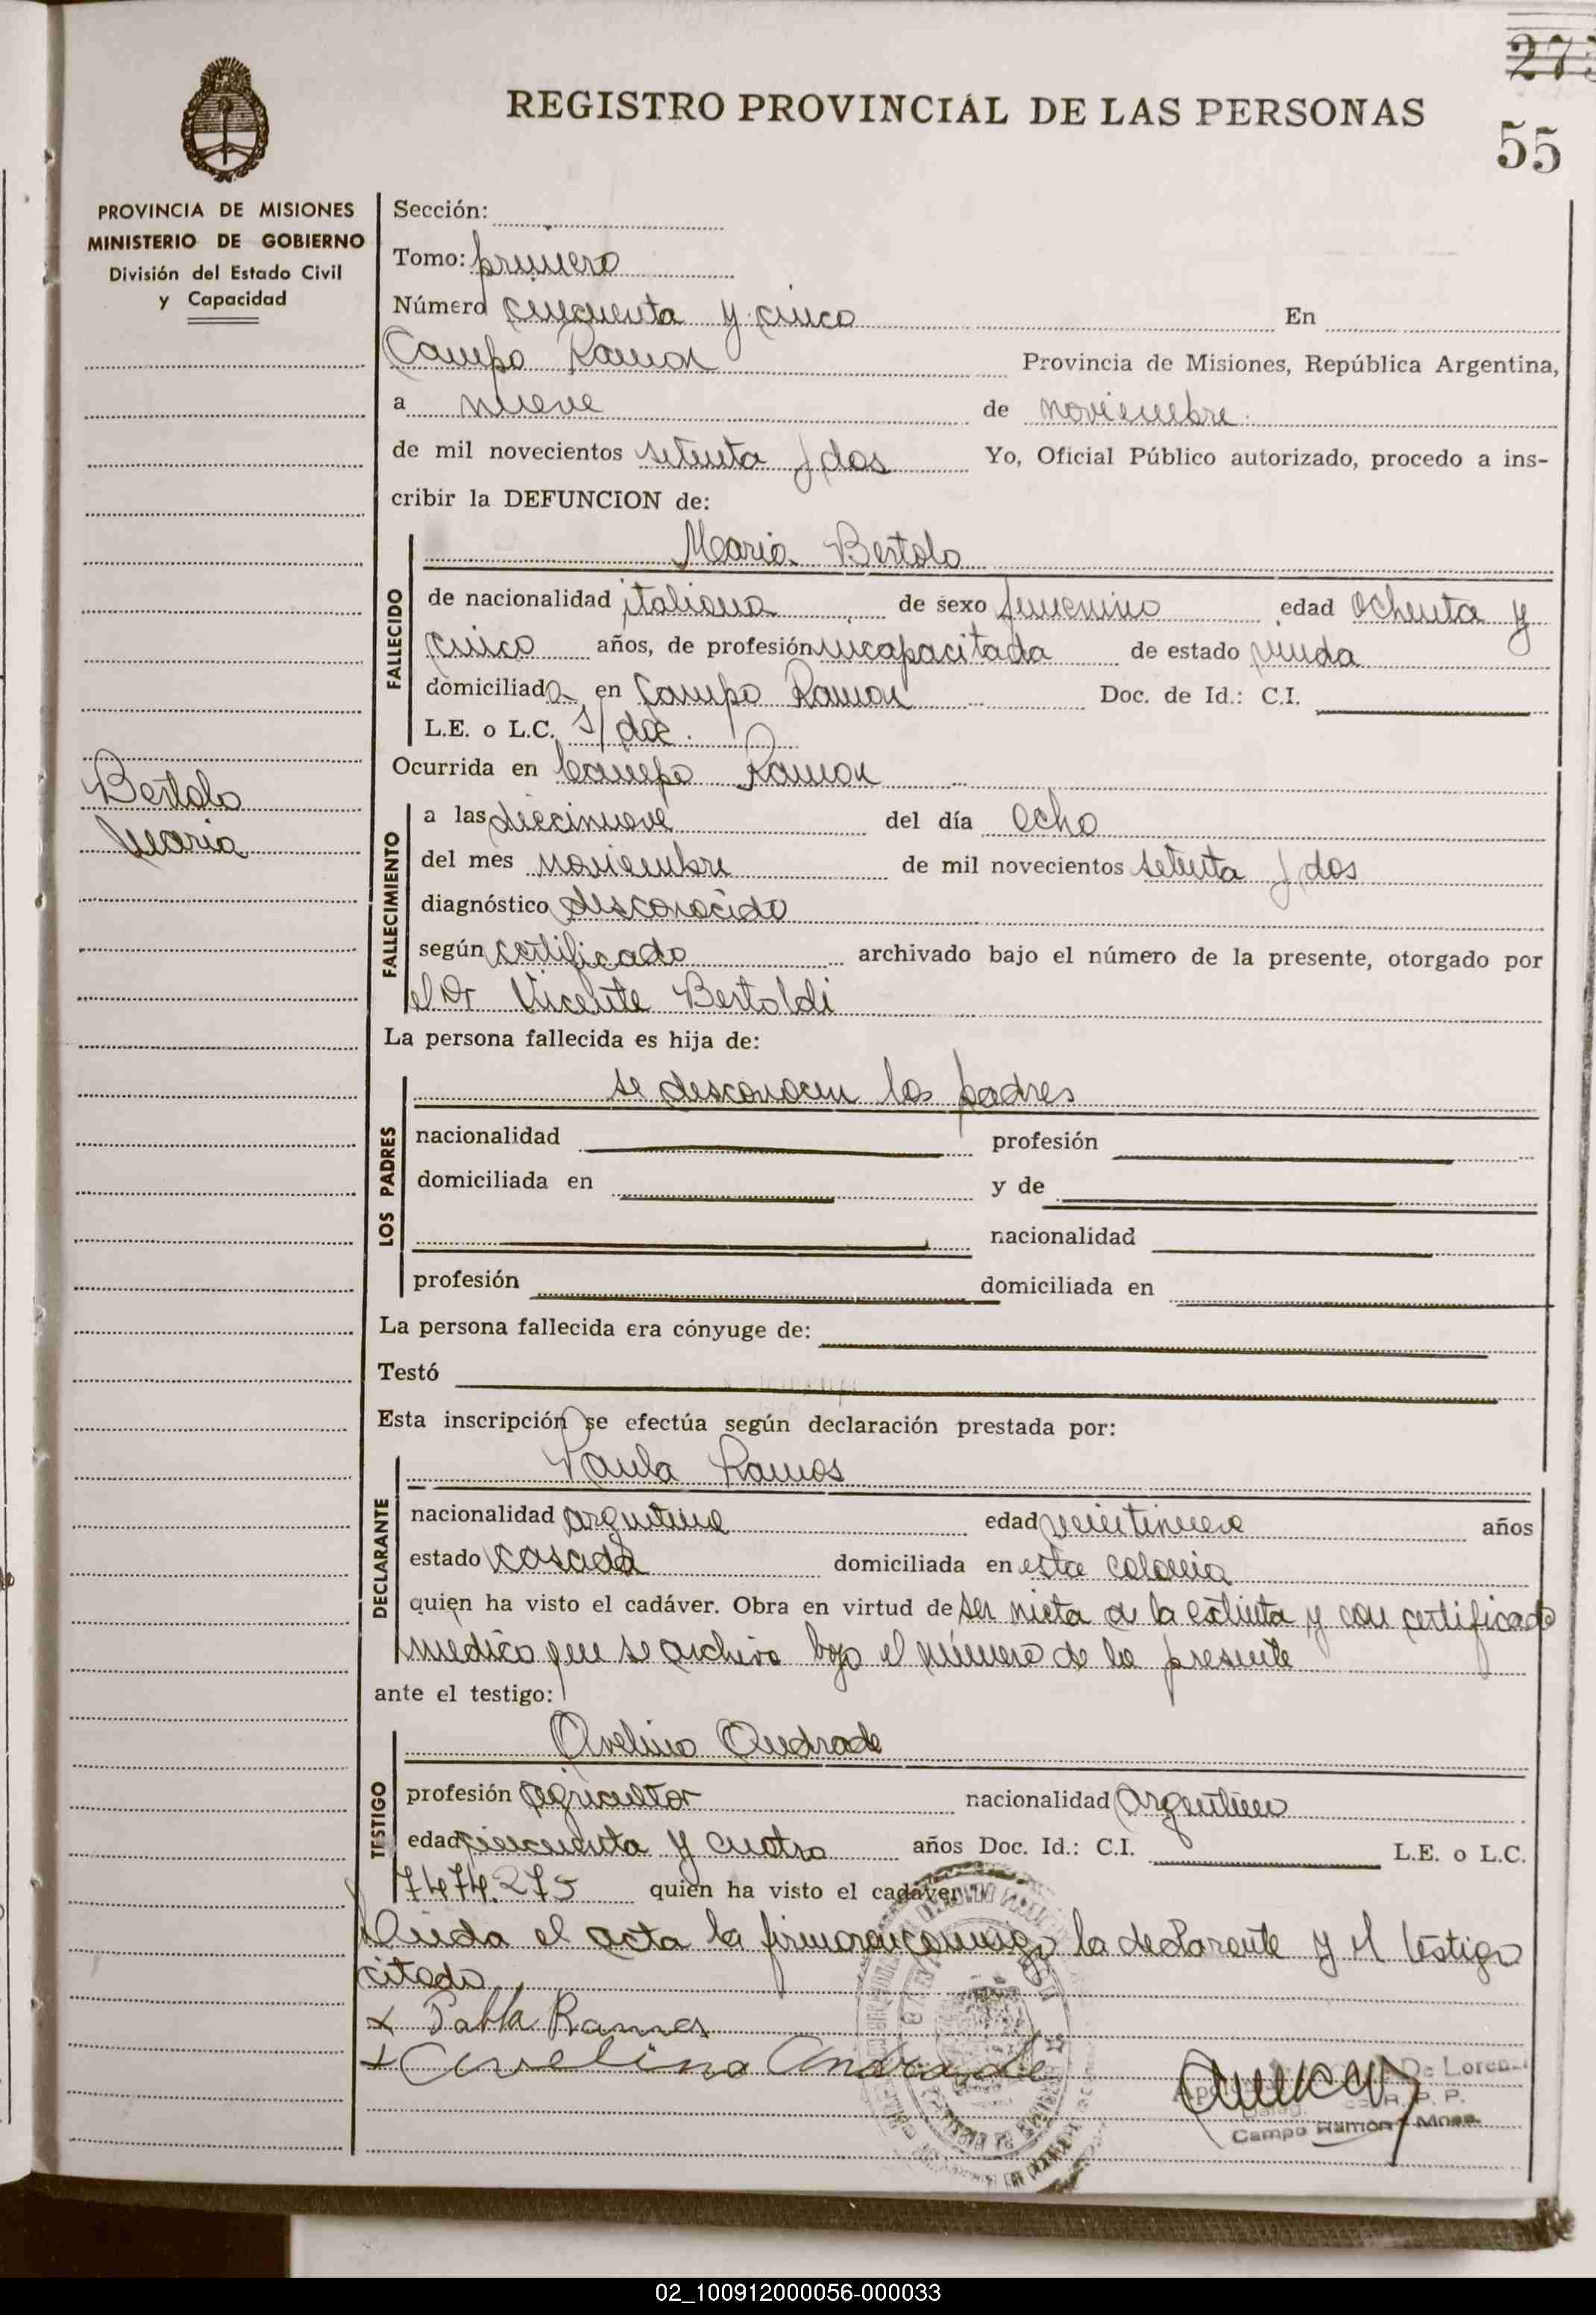 273
55
REGISTRO PROVINCIAL DE LAS PERSONAS
PROVINCIA DE MISIONES
MINISTERIO DE GOBIERNO
División del Estado Civil
y Capacidad
Bertolo
Maria
Sección:
Tomo: primero
Número cincuenta y cinco En
Campo Ramon Provincia de Misiones, República Argentina,
a nueve de noviembre
de mil novecientos setenta y dos Yo, Oficial Público autorizado, procedo a ins-
cribir la DEFUNCION de:
FALLECIDO
Maria Bertolo
de nacionalidad italiana de sexo femenino edad ochenta y
cinco años, de profesión incapacitada de estado viuda
domiciliada en Campo Ramon Doc. de Id.: C.I.
L.E. o L.C. s/doc.
Ocurrida en Campo Ramon
FALLECIMIENTO
a las diecinueve del día ocho
del mes noviembre de mil novecientos setenta y dos
diagnóstico desconocido
según certificado archivado bajo el número de la presente, otorgado por
el Dr Vicente Bertoldi
La persona fallecida es hija de:
LOS PADRES
se desconocen los padres
nacionalidad profesión
domiciliada en y de
nacionalidad
profesión domiciliada en
La persona fallecida era cónyuge de:
Testó
Esta inscripción se efectúa según declaración prestada por:
DECLARANTE
Paula Ramos
nacionalidad argentina edad veintinueve años
estado casada domiciliada en esta colonia
quien ha visto el cadáver. Obra en virtud de ser nieta de la extinta y con certificado
medico que se archiva bajo el número de la presente
ante el testigo:
TESTIGO
Avelino Andrade
profesión agricultor nacionalidad Argentino
edad cincuenta y cuatro años Doc. Id.: C.I. L.E. o L.C.
7474.275 quien ha visto el cadáver
Leida el acta la firman conmigo la declarante y el testigo
citado
x Pabla Ramos
x Avelino Andrade
De Lorenzi
R. P. P.
Campo Ramón - Mnes.
02_100912000056-000033